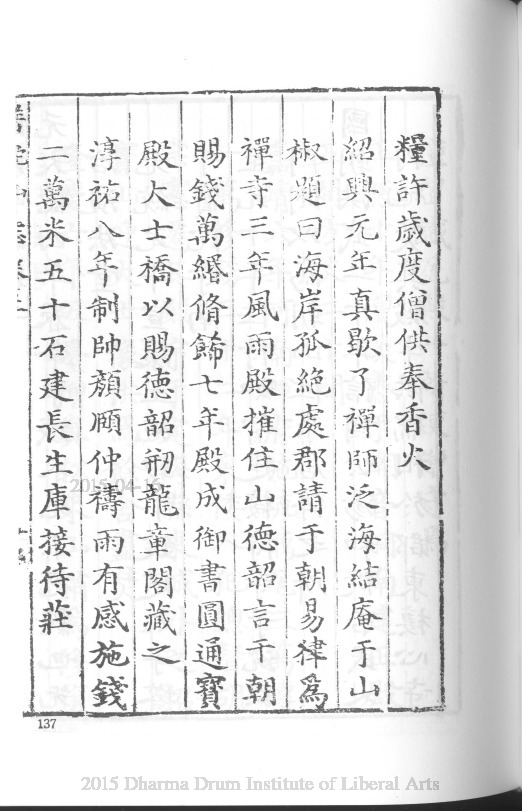 糧許歲度僧供奉香火
紹興元年真歇了禪師泛海結庵于山
椒題曰海岸孤絕處郡請于朝易律爲
禪寺三年風雨殿摧住山德韶言于朝
賜錢萬緡脩餙七年殿成御書圓通寶
殿大士橋以賜德韶刱龍章閣藏之
淳祐八年制帥顏頤仲禱雨有感施錢
二萬米五十石建長生庫接待莊
137
2015-04-16
2015 Dharma Drum Institute of Liberal Arts